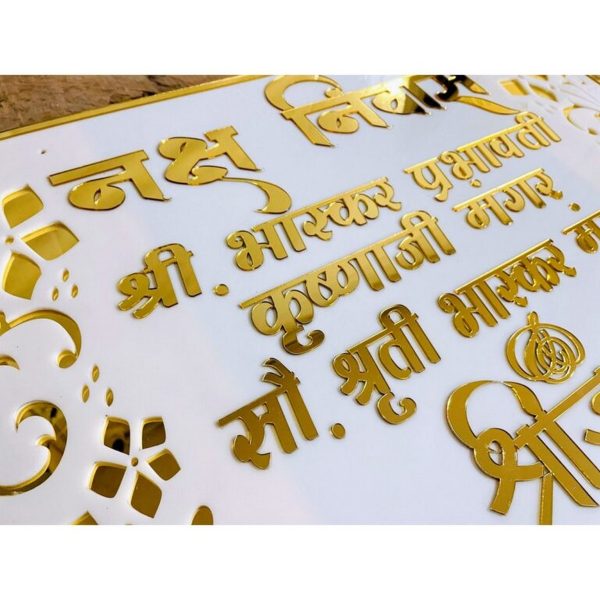 नक्षु निवास
श्री. भास्कर प्रभावती
कृष्णाजी मगर.
सौ. श्रुती भास्कर